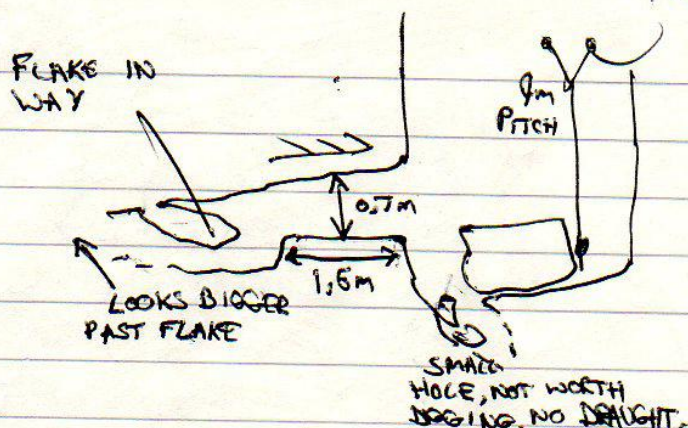 FLAKE IN
WAY
9m
PITCH
0,7m
1,6m
LOOKS BIGGER
PAST FLAKE
SMALL
HOLE, NOT WORTH
DIGGING, NO DRAUGHT.